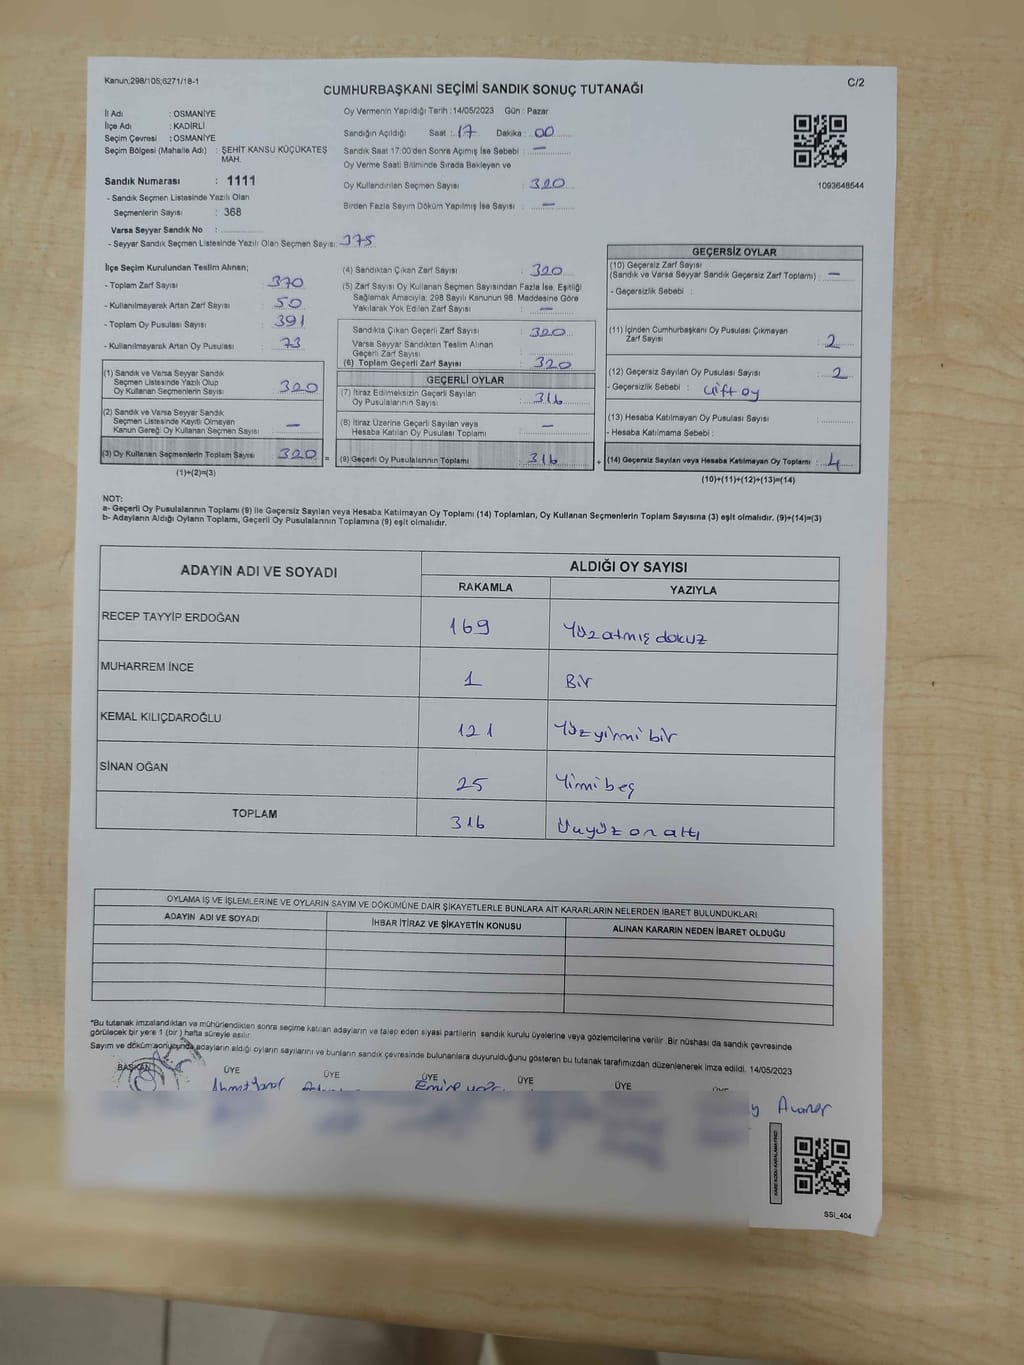 Kanun;298/105;6271/18-1
C/2
CUMHURBAŞKANI SEÇİMİ SANDIK SONUÇ TUTANAĞI
İl Adı : OSMANİYE
İlçe Adı : KADİRLİ
Seçim Çevresi : OSMANİYE
Seçim Bölgesi (Mahalle Adı) : ŞEHİT KANSU KÜÇÜKATEŞ
MAH.
Sandık Numarası : 1111
- Sandık Seçmen Listesinde Yazılı Olan
Seçmenlerin Sayısı : 368
Varsa Seyyar Sandık No :
- Seyyar Sandık Seçmen Listesinde Yazılı Olan Seçmen Sayısı: 375
Oy Vermenin Yapıldığı Tarih : 14/05/2023 Gün : Pazar
Sandığın Açıldığı Saat : 17 Dakika : 00
Sandık Saat 17:00'den Sonra Açımış İse Sebebi : —
Oy Verme Saati Bitiminde Sırada Bekleyen ve
Oy Kullandırılan Seçmen Sayısı : 320
Birden Fazla Sayım Döküm Yapılmış İse Sayısı : —
1093648544
İlçe Seçim Kurulundan Teslim Alınan;
- Toplam Zarf Sayısı : 370
- Kullanılmayarak Artan Zarf Sayısı : 50
- Toplam Oy Pusulası Sayısı : 391
- Kullanılmayarak Artan Oy Pusulası : 73
(1) Sandık ve Varsa Seyyar Sandık
Seçmen Listesinde Yazılı Olup
Oy Kullanan Seçmenlerin Sayısı : 320
(2) Sandık ve Varsa Seyyar Sandık
Seçmen Listesinde Kayıtlı Olmayan
Kanun Gereği Oy Kullanan Seçmen Sayısı : —
(3) Oy Kullanan Seçmenlerin Toplam Sayısı : 320 =
(1)+(2)=(3)
(4) Sandıktan Çıkan Zarf Sayısı : 320
(5) Zarf Sayısı Oy Kullanan Seçmen Sayısından Fazla İse, Eşitliği
Sağlamak Amacıyla; 298 Sayılı Kanunun 98. Maddesine Göre
Yakılarak Yok Edilen Zarf Sayısı : —
Sandıkta Çıkan Geçerli Zarf Sayısı : 320
Varsa Seyyar Sandıktan Teslim Alınan
Geçerli Zarf Sayısı :
(6) Toplam Geçerli Zarf Sayısı : 320
GEÇERLİ OYLAR
(7) İtiraz Edilmeksizin Geçerli Sayılan
Oy Pusulalarının Sayısı : 316
(8) İtiraz Üzerine Geçerli Sayılan veya
Hesaba Katılan Oy Pusulası Toplamı : —
(9) Geçerli Oy Pusulalarının Toplamı : 316 +
GEÇERSİZ OYLAR
(10) Geçersiz Zarf Sayısı
(Sandık ve Varsa Seyyar Sandık Geçersiz Zarf Toplamı) : —
- Geçersizlik Sebebi :
(11) İçinden Cumhurbaşkanı Oy Pusulası Çıkmayan
Zarf Sayısı : 2
(12) Geçersiz Sayılan Oy Pusulası Sayısı : 2
- Geçersizlik Sebebi : Çift oy
(13) Hesaba Katılmayan Oy Pusulası Sayısı :
- Hesaba Katılmama Sebebi :
(14) Geçersiz Sayılan veya Hesaba Katılmayan Oy Toplamı : 4
(10)+(11)+(12)+(13)=(14)
NOT:
a- Geçerli Oy Pusulalarının Toplamı (9) ile Geçersiz Sayılan veya Hesaba Katılmayan Oy Toplamı (14) Toplamları, Oy Kullanan Seçmenlerin Toplam Sayısına (3) eşit olmalıdır. (9)+(14)=(3)
b- Adayların Aldığı Oyların Toplamı, Geçerli Oy Pusulalarının Toplamına (9) eşit olmalıdır.
ADAYIN ADI VE SOYADI ALDIĞI OY SAYISI
RAKAMLA YAZIYLA
RECEP TAYYİP ERDOĞAN 169 Yüz atmış dokuz
MUHARREM İNCE 1 Bir
KEMAL KILIÇDAROĞLU 121 Yüz yirmi bir
SİNAN OĞAN 25 Yirmi beş
TOPLAM 316 Üçyüz on altı
OYLAMA İŞ VE İŞLEMLERİNE VE OYLARIN SAYIM VE DÖKÜMÜNE DAİR ŞİKAYETLERLE BUNLARA AİT KARARLARIN NELERDEN İBARET BULUNDUKLARI
ADAYIN ADI VE SOYADI İHBAR İTİRAZ VE ŞİKAYETİN KONUSU ALINAN KARARIN NEDEN İBARET OLDUĞU
*Bu tutanak imzalandıktan ve mühürlendikten sonra seçime katılan adayların ve talep eden siyasi partilerin sandık kurulu üyelerine veya gözlemcilerine verilir. Bir nüshası da sandık çevresinde
görülecek bir yere 1 (bir) hafta süreyle asılır.
Sayım ve döküm sonucunda adayların aldığı oyların sayılarını ve bunların sandık çevresinde bulunanlara duyurulduğunu gösteren bu tutanak tarafımızdan düzenlenerek imza edildi. 14/05/2023
BAŞKAN ÜYE ÜYE ÜYE ÜYE ÜYE ÜYE
SSI_404